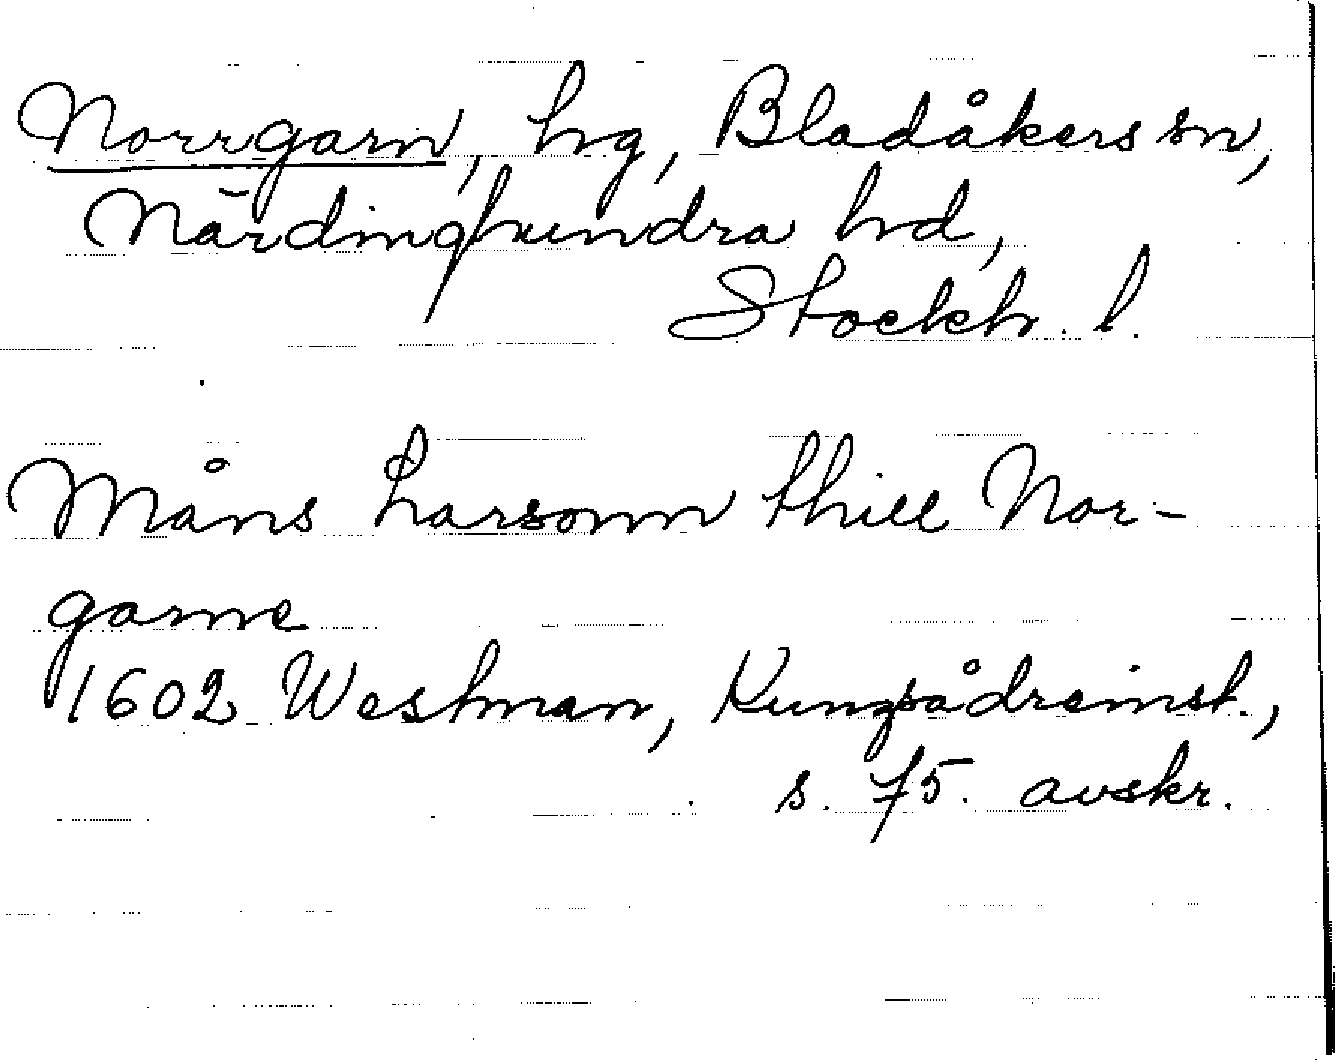 Norrgarn, hg, Bladåkers sn,
Närdinghundra hd,
Stockh. l.
Måns Larsonn thill Nor-
garne
1602 Westman, Kungsådreinst.,
s. 75. avskr.